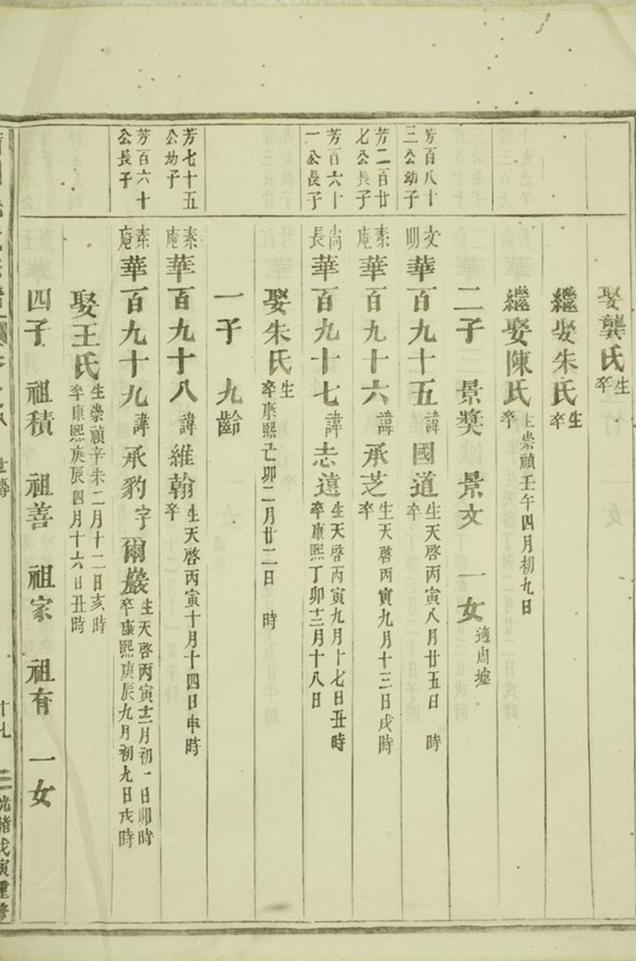 娶龔氏 生 卒
繼娶朱氏 生 卒
繼娶陳氏 生崇禎壬午四月初九日 卒
二子 景獎 景文 一女 適周墟
芳百八十三公幼子 文明 華百九十五 諱國道 生天啓丙寅八月廿五日 時 卒
芳二百廿七公長子 素庵 華百九十六 諱承芝 生天啓丙寅九月十三日戌時 卒
芳百六十一公長子 尚長 華百九十七 諱志遠 生天啓丙寅九月十七日丑時 卒康熙丁卯十二月十八日
娶朱氏 生 卒康熙己卯二月廿二日 時
一子 九齡
芳七十五公幼子 素庵 華百九十八 諱維翰 生天啓丙寅十月十四日申時 卒
芳百六十公長子 素庵 華百九十九 諱承豹 字爾巖 生天啓丙寅十二月初一日卯時 卒康熙庚辰九月初九日戌時
娶王氏 生崇禎辛未二月十二日亥時 卒康熙庚辰四月十六日丑時
四子 祖積 祖善 祖家 祖有 一女
世傳 十七 光緒戊寅重修